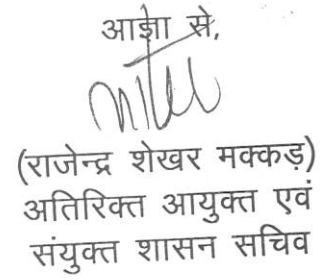 आज्ञा से,
(राजेन्द्र शेखर मक्कड़)
अतिरिक्त आयुक्त एवं
संयुक्त शासन सचिव